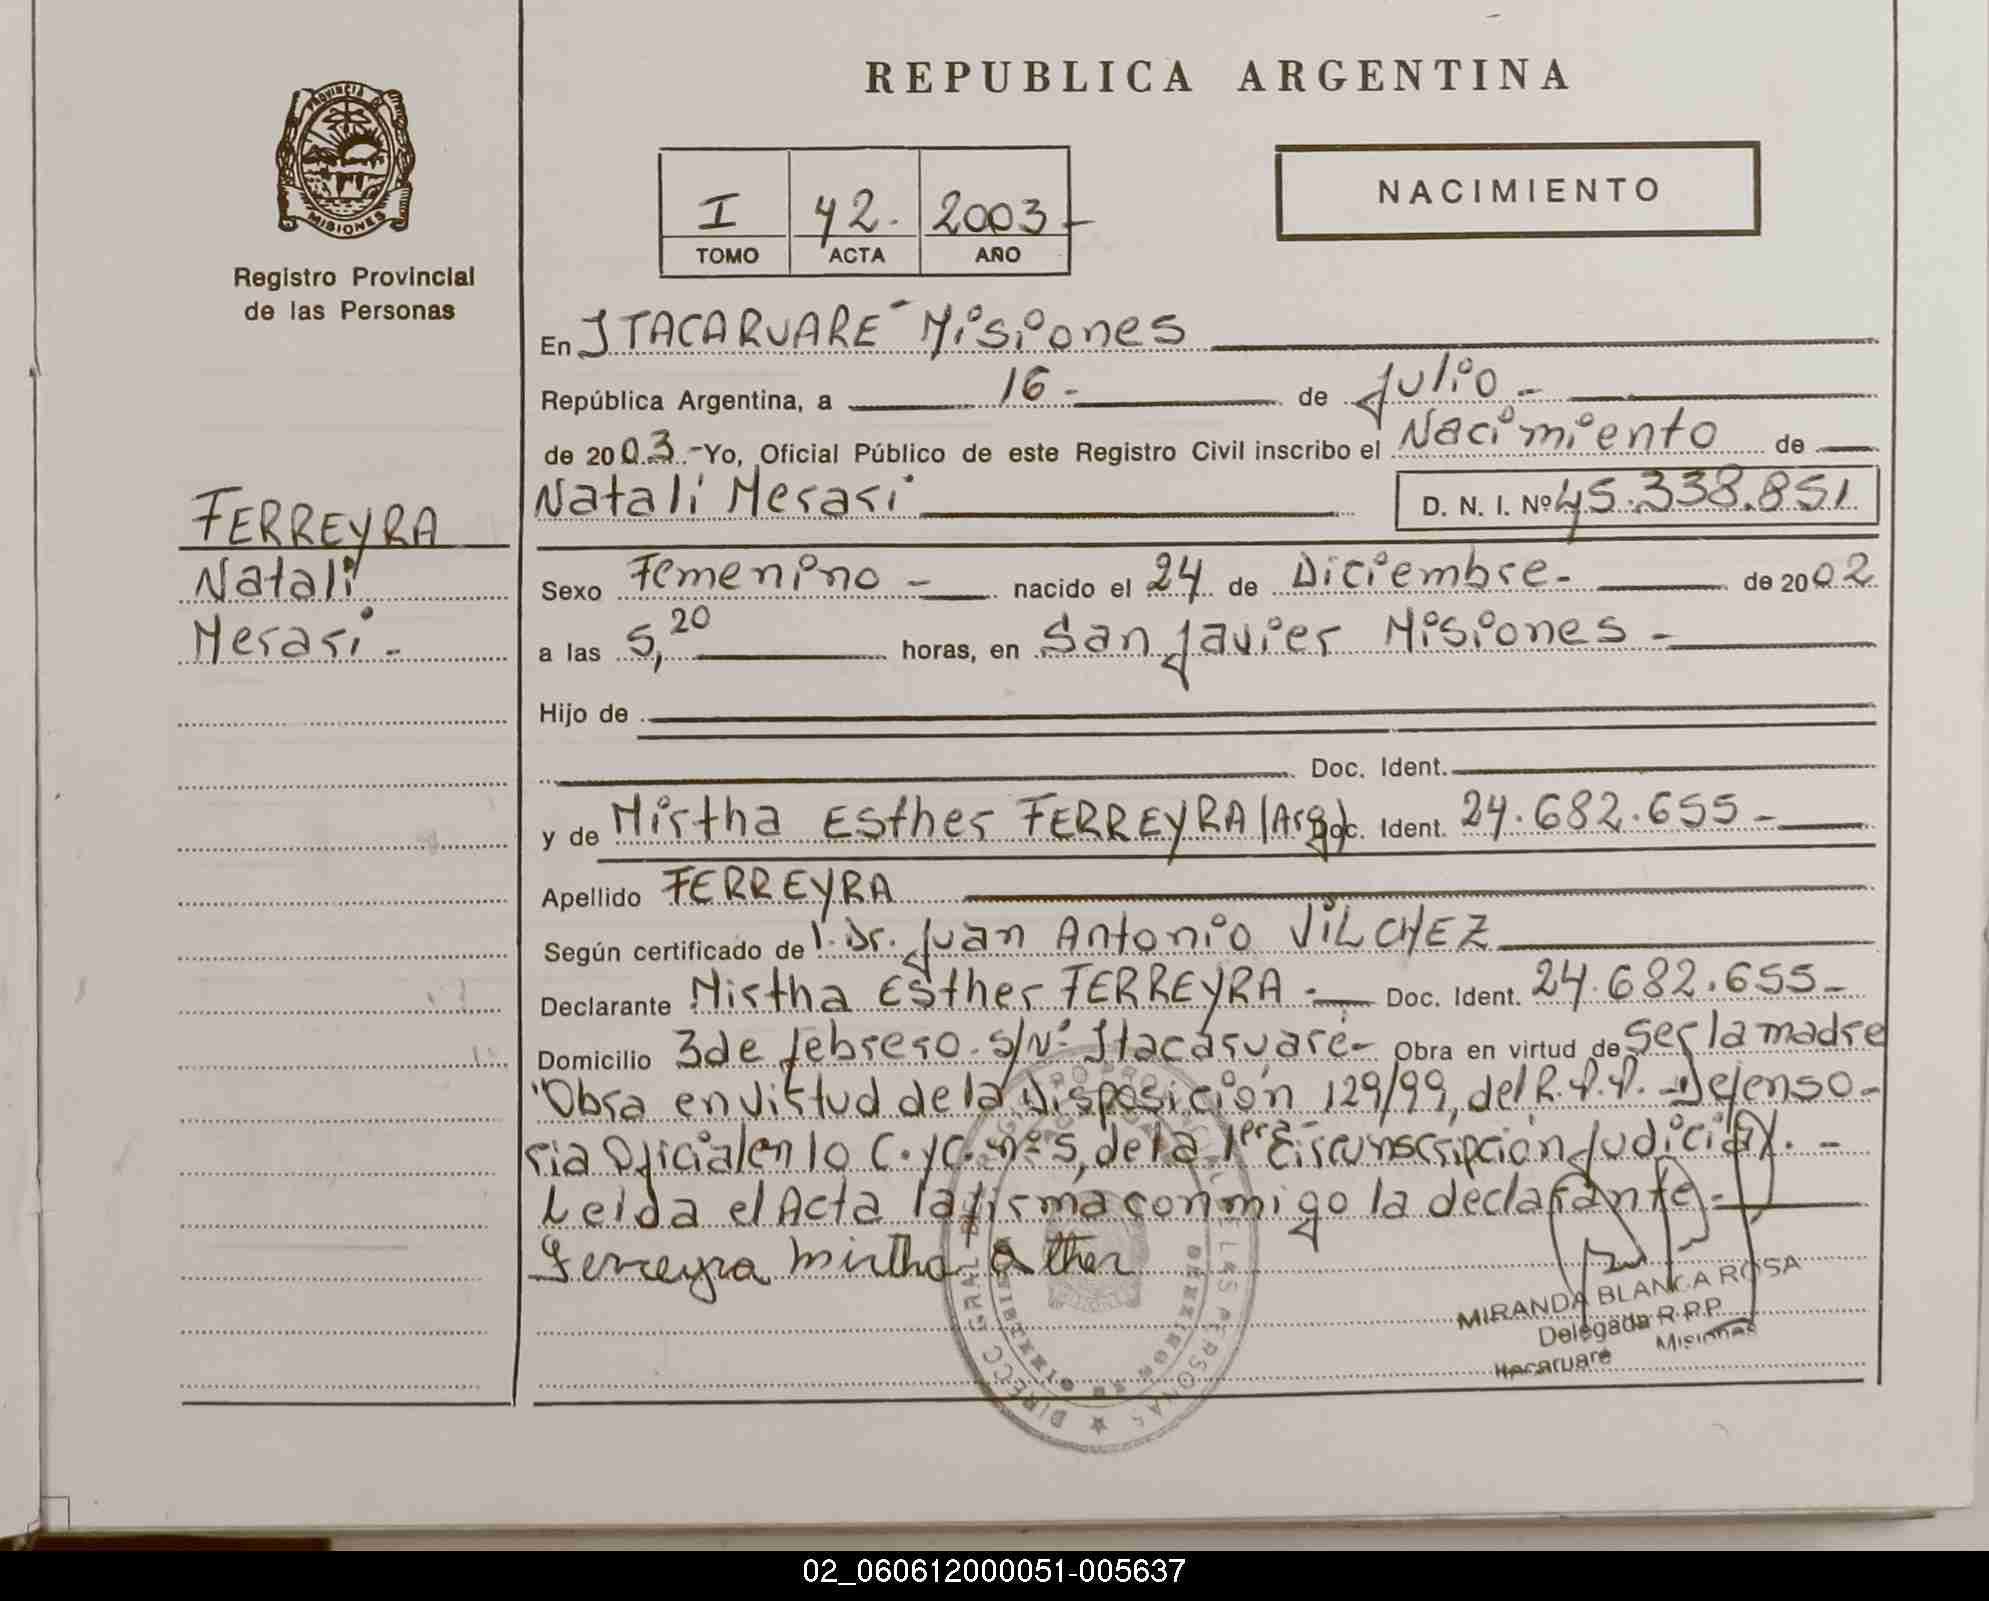 REPUBLICA ARGENTINA
PROVINCIA DE
MISIONES
Registro Provincial
de las Personas
I 42.- 2003-
TOMO ACTA AÑO
NACIMIENTO
En ITACARUARE - Misiones
República Argentina, a 16- de Julio-
de 2003.- Yo, Oficial Público de este Registro Civil inscribo el Nacimiento de
Natali Merari D. N. I. Nº 45.338.851
FERREYRA
Natali
Merari.-
Sexo Femenino - nacido el 24 de Diciembre- de 2002
a las 5,20 horas, en San Javier Misiones -
Hijo de
Doc. Ident.
y de Mirtha Esther FERREYRA (Arg) Doc. Ident. 24.682.655-
Apellido FERREYRA
Según certificado de Dr. Juan Antonio VILCHEZ
Declarante Mirtha Esther FERREYRA - Doc. Ident. 24.682.655-
Domicilio 3 de febrero. s/Nº Itacaruaré- Obra en virtud de ser la madre
"Obra en virtud de la Disposición 129/99, del R.P.P. - Defenso-
ria Oficial en lo C. y C. nº 5, de la 1era Circunscripción Judicial. -
Leida el Acta la firma conmigo la declarante.-
Ferreyra Mirtha Esther
DIRECC. GRAL. LAS PERSONAS
MIRANDA BLANCA ROSA
Delegada R.P.P.
Itacaruare Misiones
02_060612000051-005637